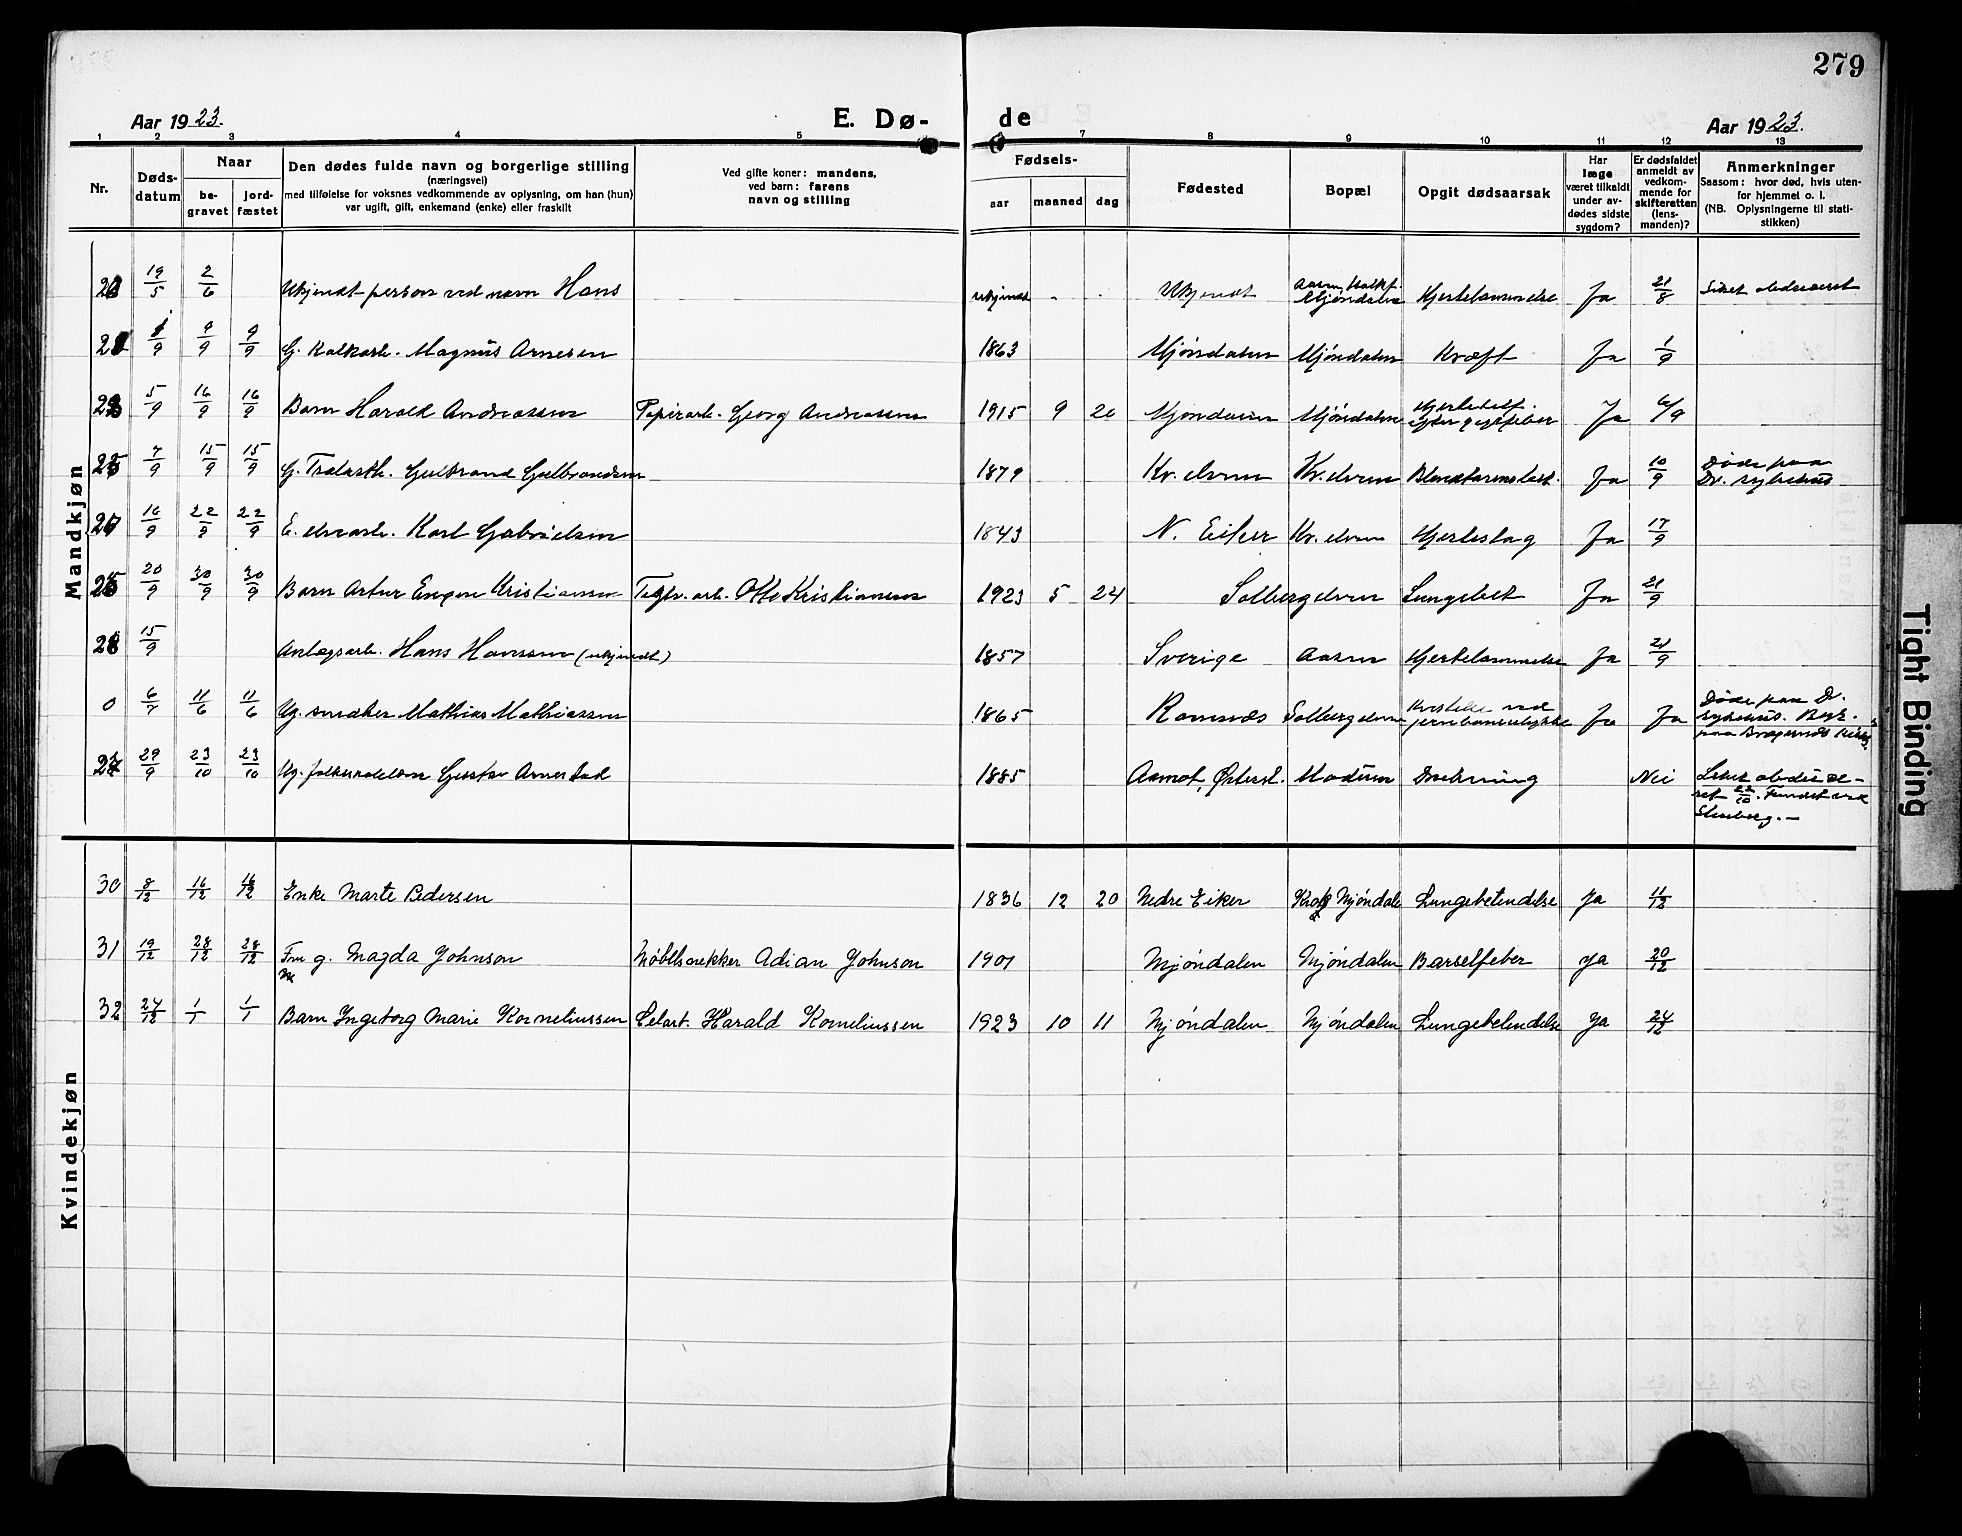 279
Aar 1923.
E. Dø-
de
Aar 1923.
1 2 3 4 5 6 7 8 9 10 11 12 13
Nr.
Døds-
datum
Naar
be-
gravet
jord-
fæstet
Den dødes fulde navn og borgerlige stilling
(næringsvei)
med tilføielse for voksnes vedkommende av oplysning, om han (hun)
var ugift, gift, enkemand (enke) eller fraskilt
Ved gifte koner: mandens,
ved barn: farens
navn og stilling
Fødsels-
aar maaned dag
Fødested
Bopæl
Opgit dødsaarsak
Har
læge
været tilkaldt
under av-
dødes sidste
sygdom?
Er dødsfaldet
anmeldt av
vedkom-
mende for
skifteretten
(lens-
manden)?
Anmerkninger
Saasom: hvor død, hvis uten-
for hjemmet o. l.
(NB. Oplysningerne til stati-
stikken)
Mandkjøn
19/5 2/6 Ukjendt person ved navn Hans ukjendt - - Ukjendt Mjøndalen Hjertelammelse Ja 21/8
9/9 9/9 G. Kalkarb. Magnus Arnesen 1863 Mjøndalen Mjøndalen Kræft Ja 1/9
5/9 16/9 16/9 Barn Harald Andreassen Papirarb. Georg Andreassen 1915 9 20 Mjøndalen Mjøndalen Ja 6/9
7/9 15/9 15/9 G. Gulbrand Gulbrandsen 1879 Kr. elven Kr. elven Ja 10/9 Døde paa
Dr. sykehus
16/9 22/9 22/9 E. Karl Gabrielsen 1843 N. Eiker Kr. elven Hjerteslag Ja 17/9
20/9 30/9 30/9 Barn Artur Kristiansen Teglv. arb. Otto Kristiansen 1923 5 24 Solbergelven Lungebet Ja 21/9
28 15/9 Anlægsarb. Hans Hansen (ukjendt) 1857 Sverige Aasen Hjertelammelse Ja 21/9
0 6/7 11/6 11/6 Ug. snedker Mathias Mathiassen 1865 Ramnes Solbergelven
jernbaneulykke Ja Ja Døde paa Dr.
sykehus. Begr.
paa Bragernes
29/9 23/10 23/10 Ug. Gustav Arnestad 1885 Aamot, Modum Drukning Nei
22/10. Fundet ved
30 8/12 16/12 16/12 Enke Marte Pedersen 1836 12 20 Nedre Eiker Mjøndale Lungebetendelse Ja 11/12
31 19/12 28/12 28/12 Fru g. Magda Johnson Møbelsnekker Adian Johnson 1901 Mjøndalen Mjøndalen Barselfeber Ja 20/12
32 24/12 1/1 1/1 Barn Ingeborg Marie Korneliussen Celarb. Harald Korneliussen 1923 10 11 Mjøndalen Mjøndalen Lungebetendelse Ja 24/12
Kvindekjøn
Tight Binding